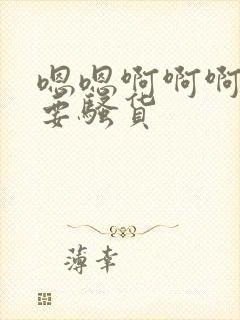 嗯嗯啊啊啊
要骚货
薄幸